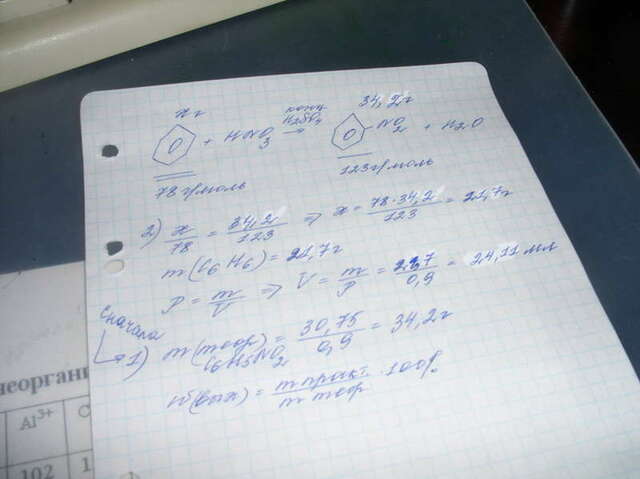 x г 34,2г
+ HNO3 конц H2SO4 → NO2 + H2O
78 г/моль 123г/моль
2) x/78 = 34,2/123 ⇒ x = 78·34,2/123 = 21,7г
m(C6H6) = 21,7г
ρ = m/V ⇒ V = m/ρ = 21,7/0,9 = 24,11 мл
Сначала
1) m(теор) C6H5NO2 = 30,75/0,9 = 34,2г
w(вых) = m практ/m теор · 100%
неорган
Al3+ C
102 1